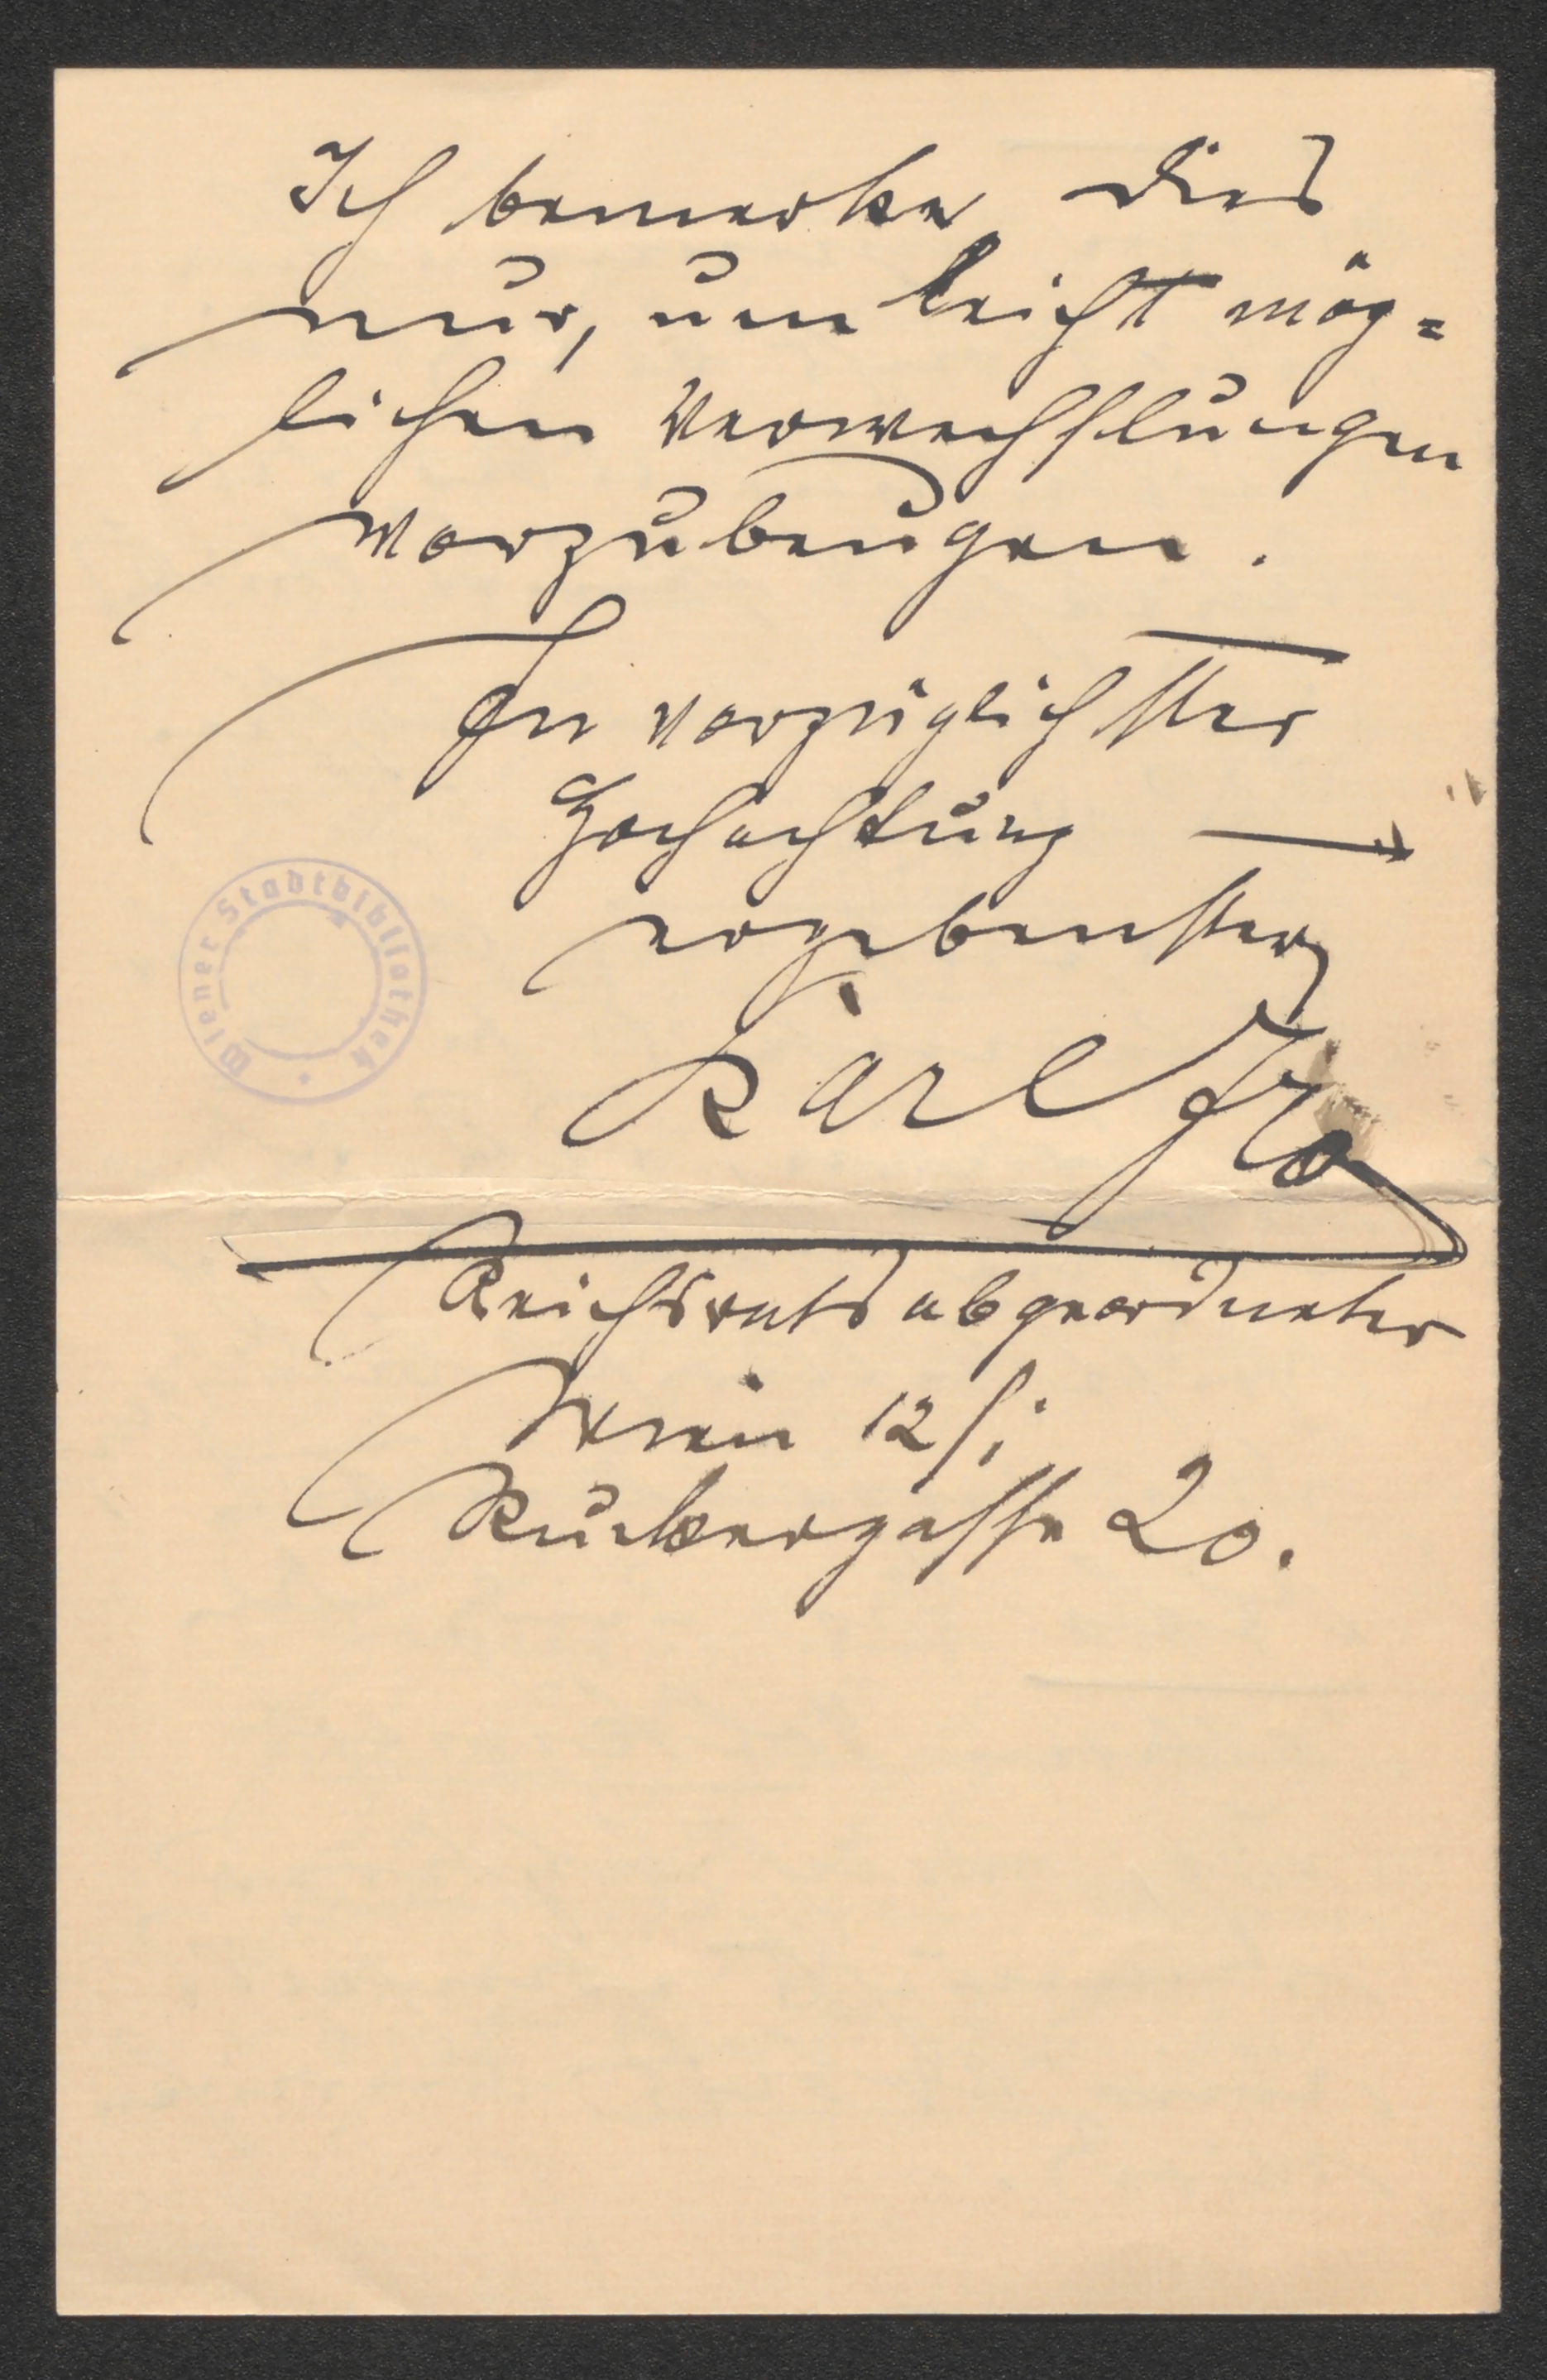 Ich bemerke dies
nur, um leicht mög=
lichen Verwechslungen
vorzubeugen.
In vorzüglichster
Hochachtung
ergebenster
Karl Iro
Reichsratsabgeordneter
Wien 12/1
Ruckergasse 20.
Wiener Stadtbibliothek